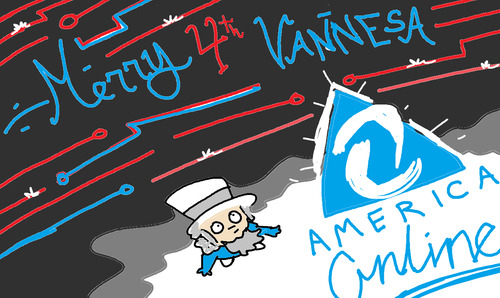 Merry 4th VANNESA
AMERICA
Online